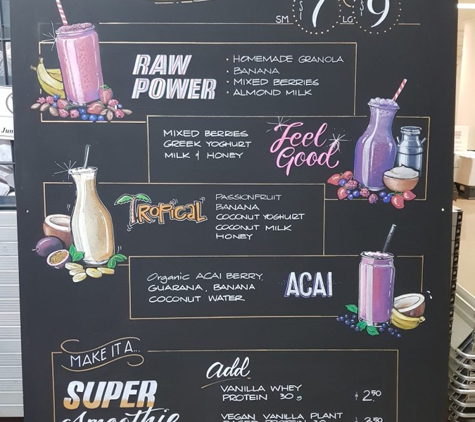 SM 7 LG 9
RAW POWER
• HOMEMADE GRANOLA
• BANANA
• MIXED BERRIES
• ALMOND MILK
MIXED BERRIES
GREEK YOGHURT
MILK + HONEY
Feel Good
TROPICAL
PASSIONFRUIT
BANANA
COCONUT YOGHURT
COCONUT MILK
HONEY
Organic ACAI BERRY,
GUARANA, BANANA
COCONUT WATER
ACAI
MAKE IT A...
SUPER
Smoothie
Add
VANILLA WHEY
PROTEIN 30g
2.50
VEGAN VANILLA PLANT
3.50